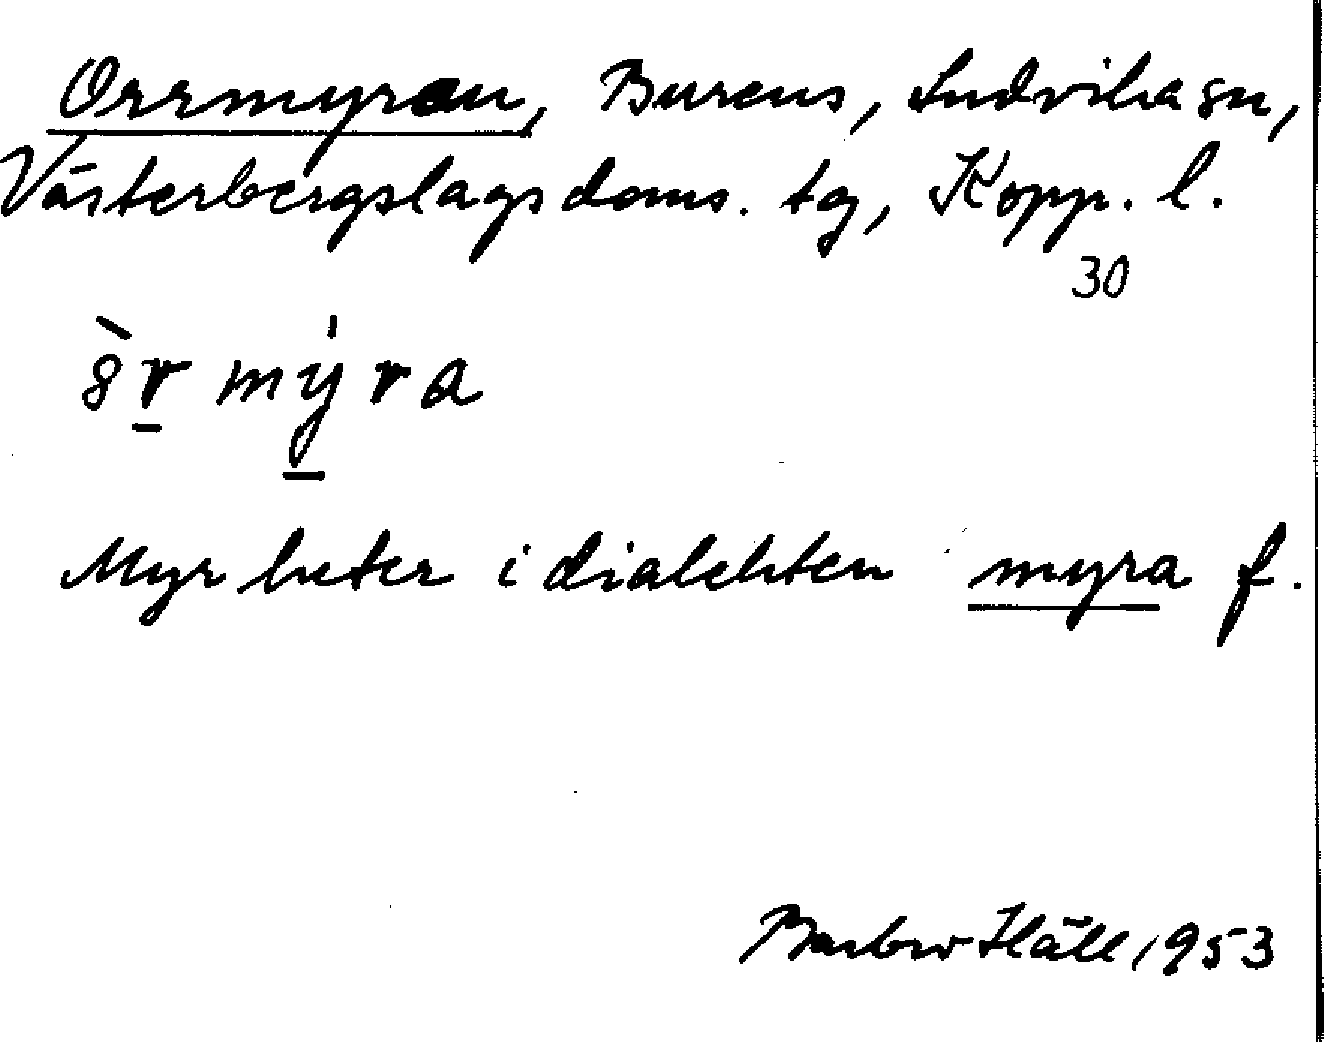 Orrmyran, Burens, Ludvika sn,
Västerbergslags doms. tg, Kopp. l.
30
Myr heter i dialekten myra f.
Barbro Häll, 1953